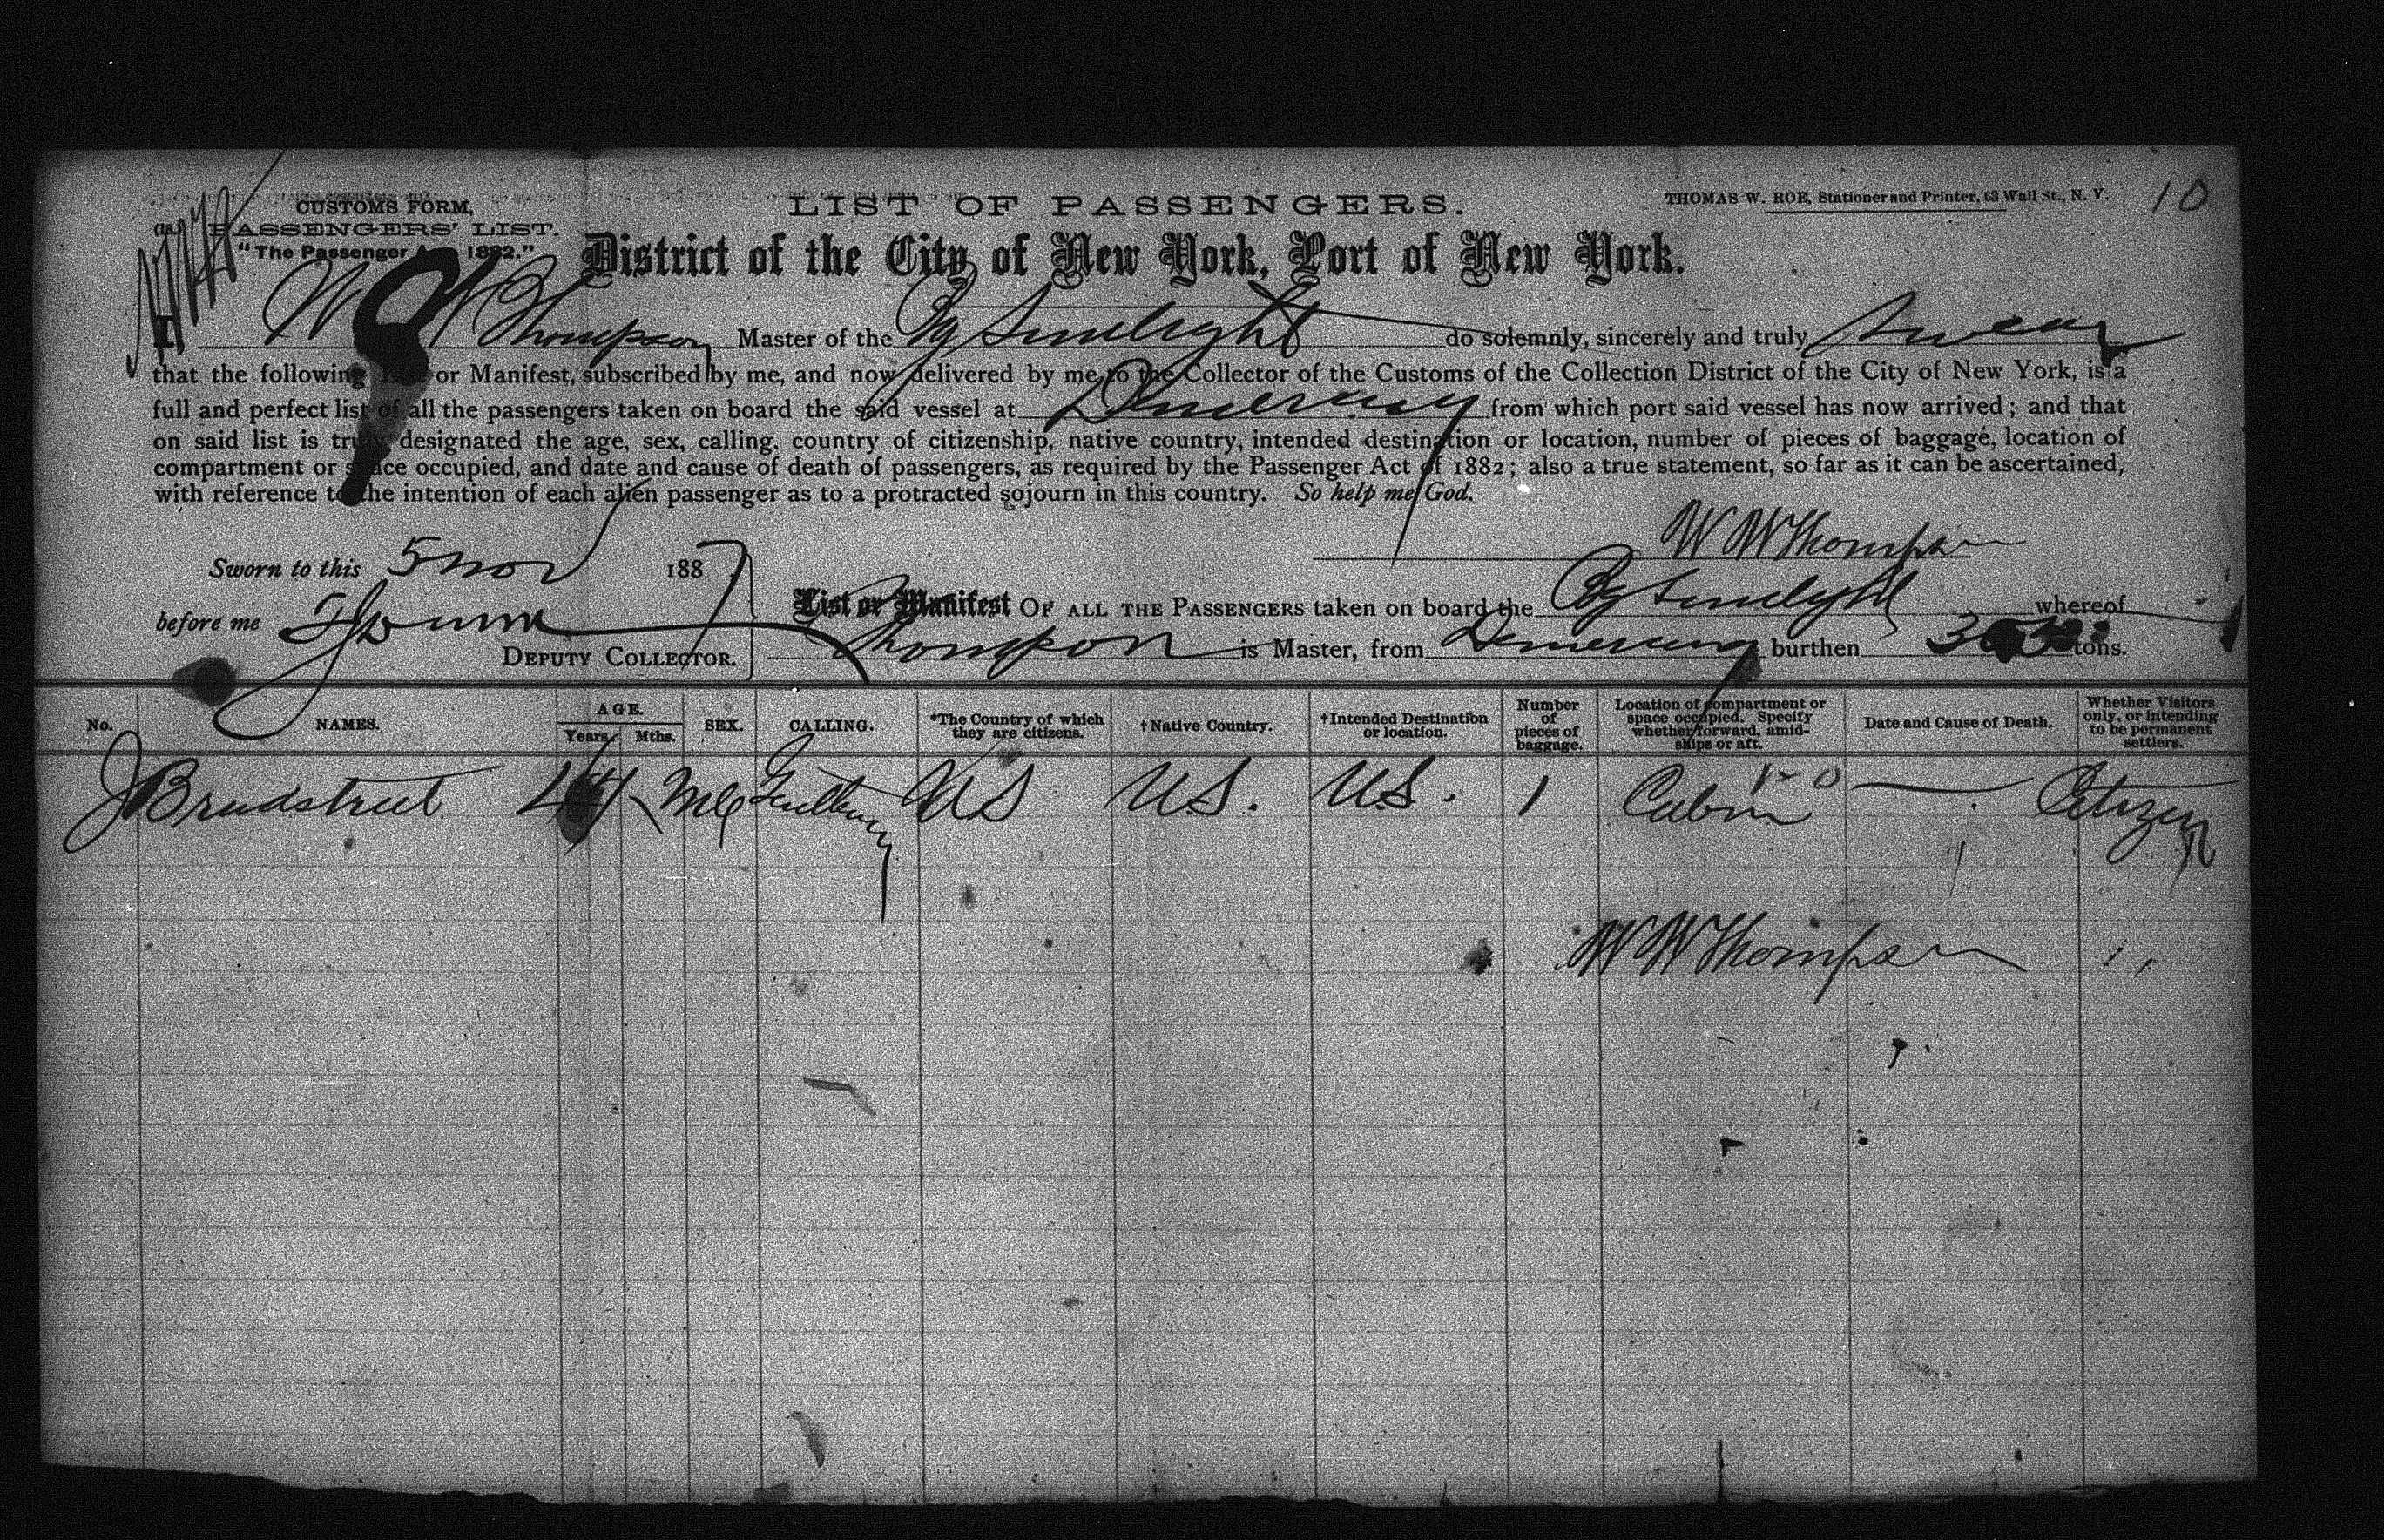 CUSTOMS FORM,
PASSENGERS' LIST.
"The Passenger Act 1882."
LIST OF PASSENGERS.
THOMAS W. ROE, Stationer and Printer, 63 Wall St., N. Y.
10
District of the City of New York, Port of New York.
I W W Thompson Master of the Bg Sunlight do solemnly, sincerely and truly swear
that the following List or Manifest, subscribed by me, and now delivered by me to the Collector of the Customs of the Collection District of the City of New York, is a
full and perfect list of all the passengers taken on board the said vessel at Demerary from which port said vessel has now arrived; and that
on said list is truly designated the age, sex, calling, country of citizenship, native country, intended destination or location, number of pieces of baggage, location of
compartment or space occupied, and date and cause of death of passengers, as required by the Passenger Act of 1882; also a true statement, so far as it can be ascertained,
with reference to the intention of each alien passenger as to a protracted sojourn in this country. So help me God.
W W Thompson
Sworn to this 5 Nov 1887
before me
DEPUTY COLLECTOR.
List or Manifest OF ALL THE PASSENGERS taken on board the Bg Sunlight whereof
Thompson is Master, from Demerary burthen tons.
No. NAMES. AGE. Years. Mths. SEX. CALLING. *The Country of which they are citizens. †Native Country. †Intended Destination or location. Number of pieces of baggage. Location of compartment or space occupied. Specify whether forward, amidships or aft. Date and Cause of Death. Whether Visitors only, or intending to be permanent settlers.
J Bradstreet 44 Mle US U.S. U.S. 1 Cabin Citizen
W W Thompson